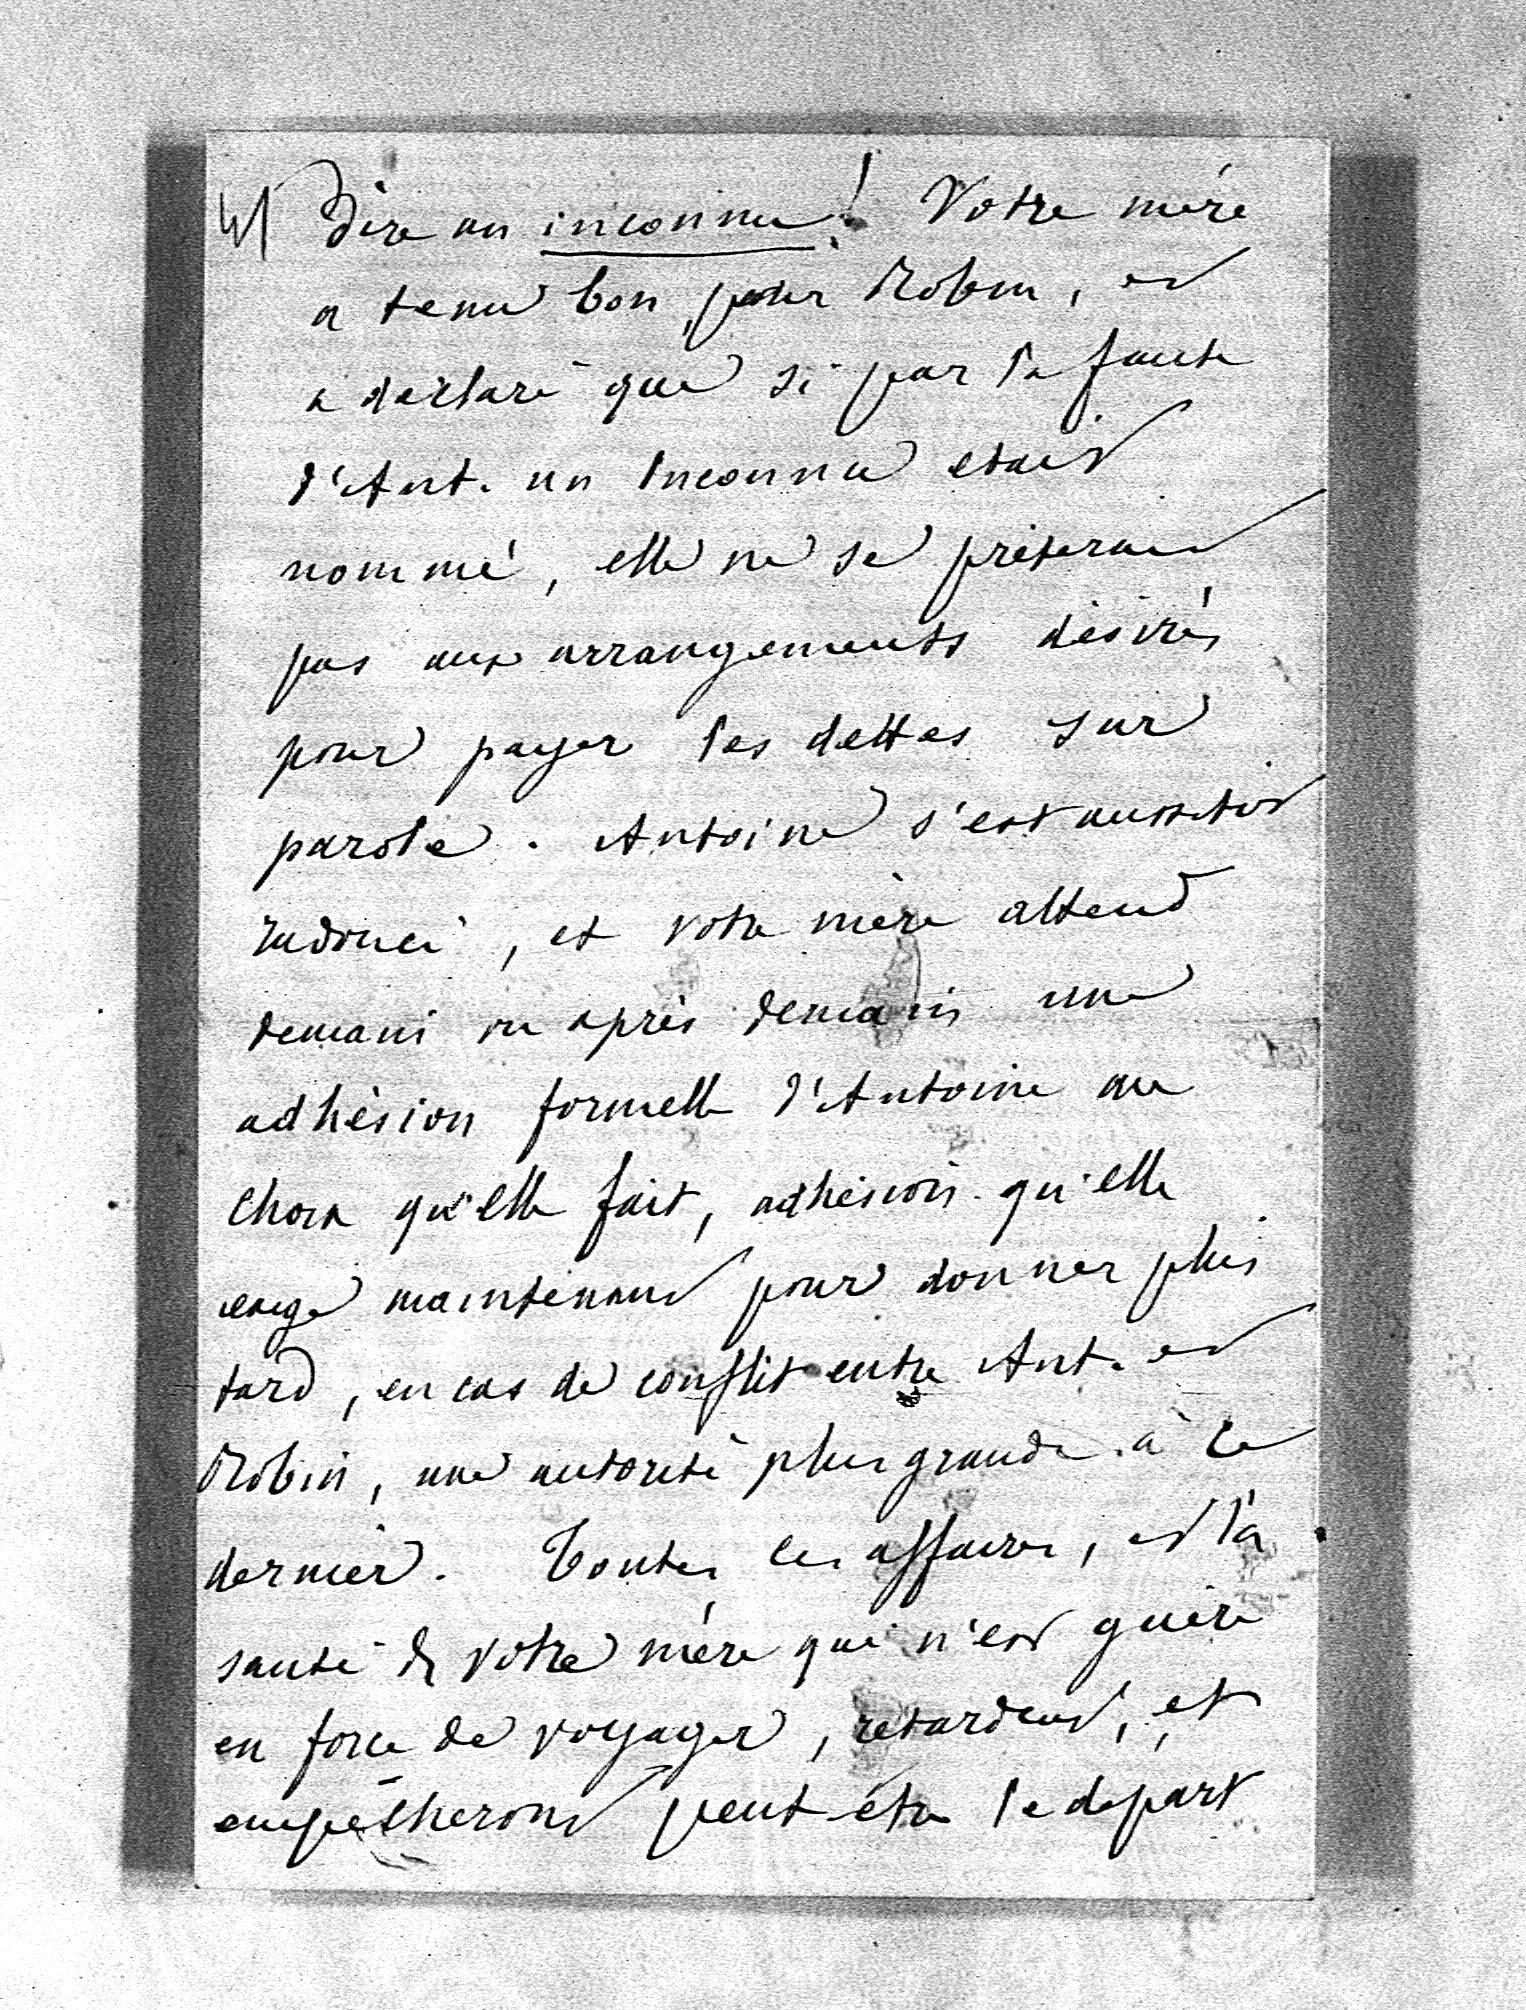 4) Dire un inconnu! Votre mère
a tenu bon pour Robin, et
a declaré que si par la faute
d'Ant. un inconnu etait
nommé, elle ne se prêterait
pas aux arrangements désirés
pour payer les dettes sur
parole. Antoine s'est aussitôt
radouci, et votre mère attend
demain ou après demain une
adhésion formelle d'Antoine au
choix qu'elle fait, adhésion qu'elle
exige maintenant pour donner plus
tard, en cas de conflit entre Ant. et
Robin, une autorité plus grande à ce
dernier. Toutes ces affaires, et la
santé de votre mère qui n'est guère
en force de voyager, retardent, et
empêcheront peut-être le depart